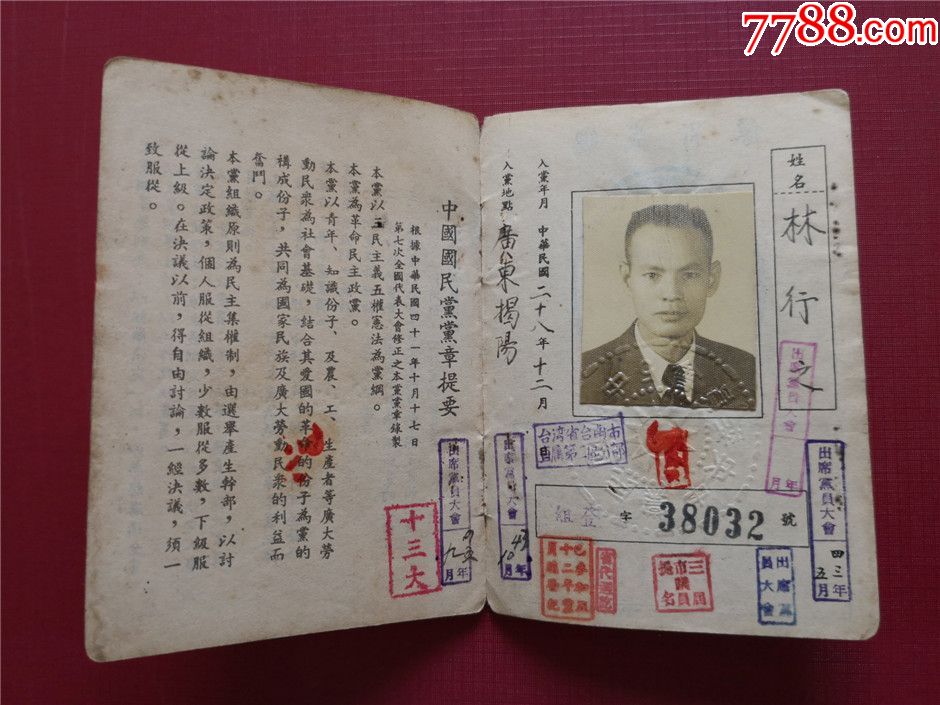 7788.com
姓名 林行之
入黨年月 中華民國二十八年十二月
入黨地點 廣東揭陽
組登字 38032 號
出席黨員大會 四三年五月
出席黨員大會 年月
出席黨員大會
出席黨員大會 43年10月
出席黨員大會 年九月
十三大
中國國民黨黨章提要
根據中華民國四十一年十月十七日
第七次全國代表大會修正之本黨黨章錄製
本黨以三民主義五權憲法為黨綱。
本黨為革命民主政黨。
本黨以青年、知識份子、及農、工、生產者等廣大勞
動民衆為社會基礎，結合其愛國的革命的份子為黨的
構成份子，共同為國家民族及廣大勞動民衆的利益而
奮鬥。
本黨組織原則為民主集權制，由選舉產生幹部，以討
論決定政策，個人服從組織，少數服從多數，下級服
從上級。在決議以前，得自由討論，一經決議，須一
致服從。